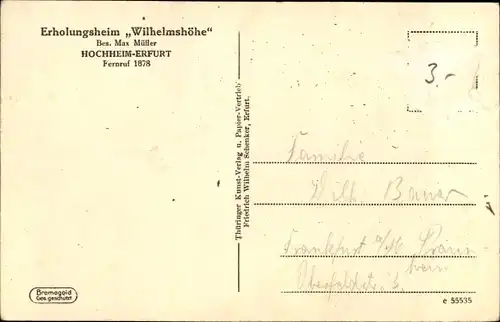 Erholungsheim „Wilhelmshöhe"
Bes. Max Müller
HOCHHEIM-ERFURT
Fernruf 1878
3.-
Thüringer Kunst-Verlag u. Papier-Vertrieb
Friedrich Wilhelm Schenker, Erfurt.
Familie
Wilh. Bauer
Frankfurt a/M
Bromogold
Ges. geschützt
e 55535